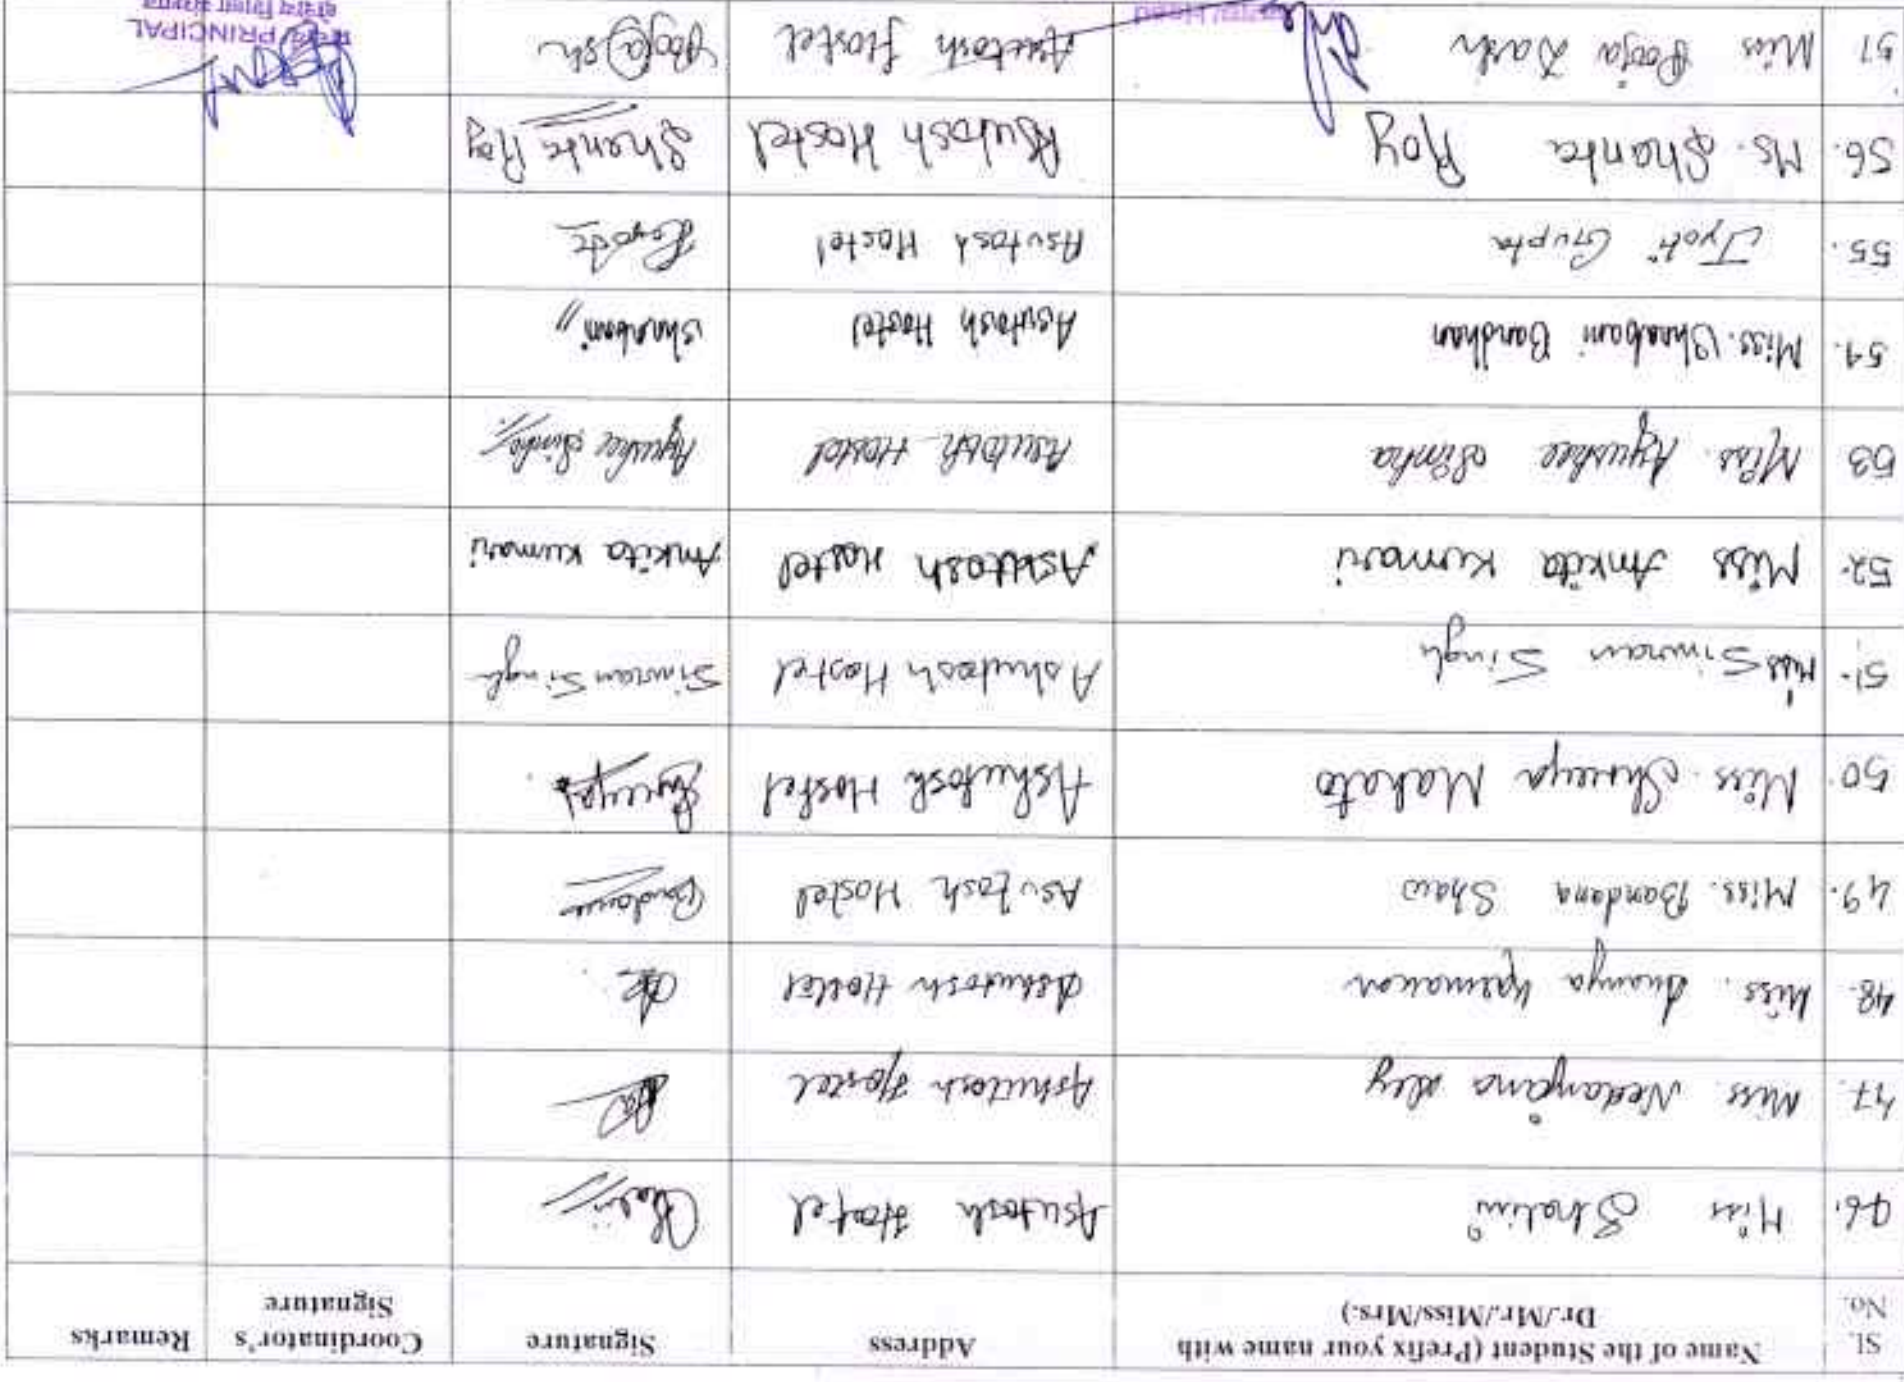 Sl. No. Name of the Student (Prefix your name with Dr./Mr./Miss/Mrs.) Address Signature Coordinator's Signature Remarks
46. Miss Shalini Asutosh Hostel
47. Miss. Nedanjana Dey Ashutosh Hostel
48. Miss. Ananya Karmakar Ashutosh Hostel
49. Miss. Bandana Shaw Asutosh Hostel Bandana
50. Miss. Shreeya Mahato Ashutosh Hostel Shreeya
51. Miss Simran Singh Ashutosh Hostel Simran Singh
52. Miss Ankita Kumari Asutosh Hostel Ankita Kumari
53 Miss. Ayushee Sinha Asutosh Hostel Ayushee Sinha
54. Miss. Shrabani Bandhan Asutosh Hostel Shrabani
55. Jyoti Gupta Asutosh Hostel
56. Ms. Shanta Roy Asutosh Hostel Shanta Roy
57 Miss Pooja Dash Asutosh Hostel
PRINCIPAL